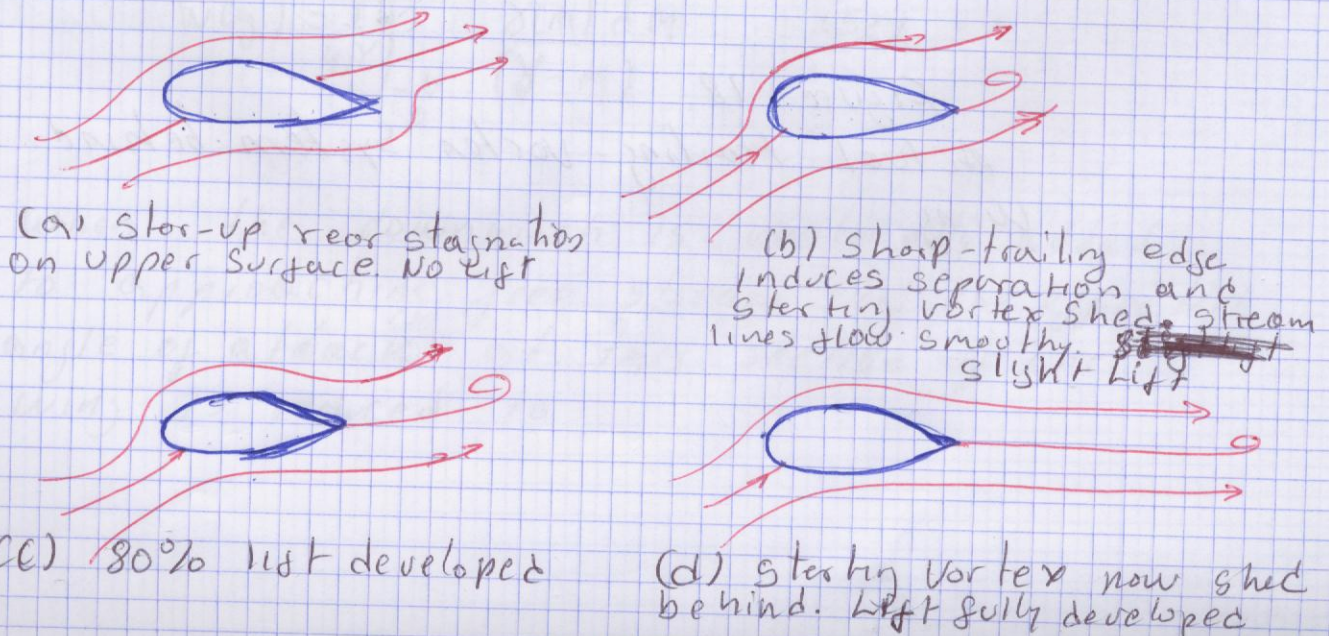 (a) Star-up rear stagnation
on upper surface. No Lift
(b) Sharp-trailing edge
induces separation and
starting vortex shed. stream
lines flow smoothy.
slight Lift
(c) 80% lift developed
(d) starting vortex now shed
behind. Lift fully developed